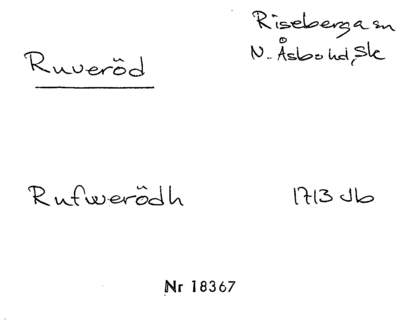 Riseberga sn
Ruveröd
N. Åsbo hd, Sk
Rufwerödh
1713 Jb
Nr 18367